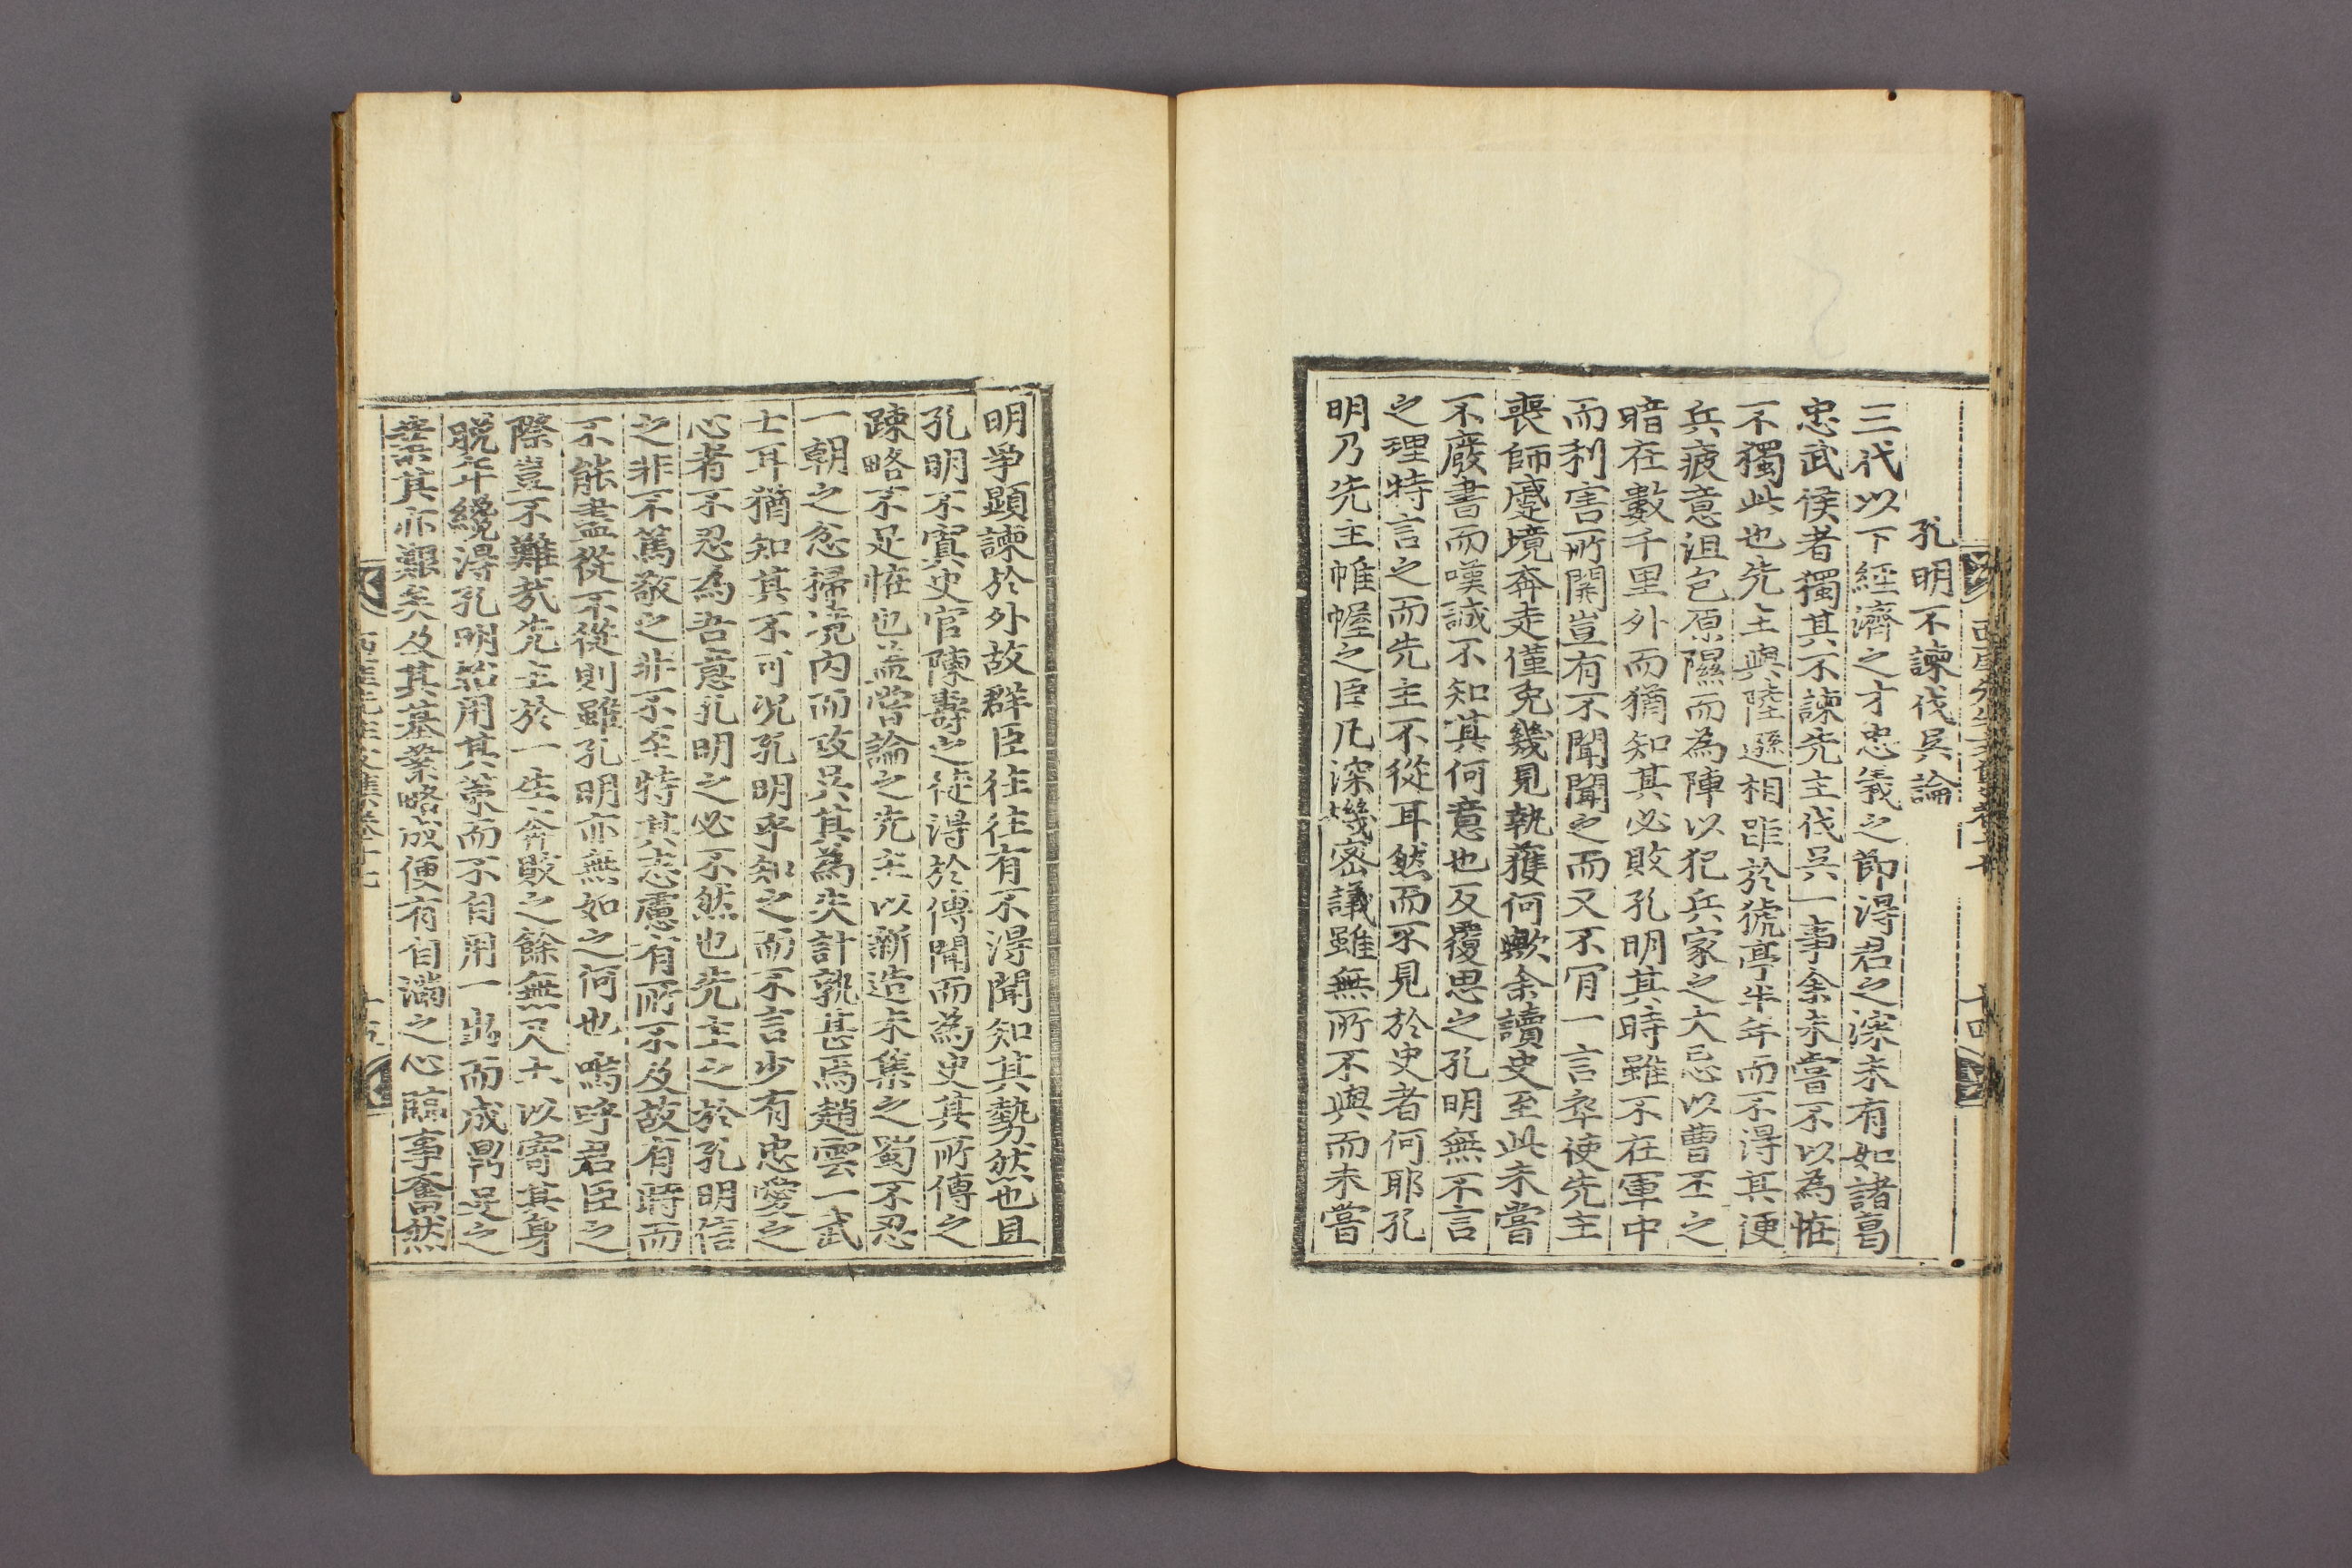 孔明不諫伐吳論
三代以下經濟之才忠義之節得君之深未有如諸葛
忠武侯者獨其不諫先主伐吳一事余未嘗不以為恠
不獨此也先主與陸遜相距於猇亭半年而不得其便
兵疲意沮包原隰而為陣以犯兵家之大忌以曹丕之
暗在數千里外而猶知其必敗孔明其時雖不在軍中
而利害所關豈有不聞聞之而又不肯一言卒使先主
喪師蹙境奔走僅免幾見執獲何歟余讀史至此未嘗
不廢書而嘆誠不知其何意也反覆思之孔明無不言
之理特言之而先主不從耳然而不見於史者何耶孔
明乃先主帷幄之臣凡深機密議雖無所不與而未嘗
明爭顯諫於外故群臣往往有不得聞知其勢然也且
孔明不寘史官陳壽之徒得於傳聞而為史其所傳之
踈略不足恠也盖嘗論之先主以新造未集之蜀不忍
一朝之忿掃境內而攻吳其為失計孰甚焉趙雲一武
士耳猶知其不可况孔明乎知之而不言少有忠愛之
心者不忍為吾意孔明之必不然也先主之於孔明信
之非不篤敬之非不至特其志慮有所不及故有時而
不能盡從不從則雖孔明亦無如之何也嗚呼君臣之
際豈不難㢤先主於一生奔敗之餘無尺土以寄其身
晩年纔得孔明始用其策而不自用一出而成鼎足之
業其亦艱矣及其基業略成便有自滿之心臨事奮然